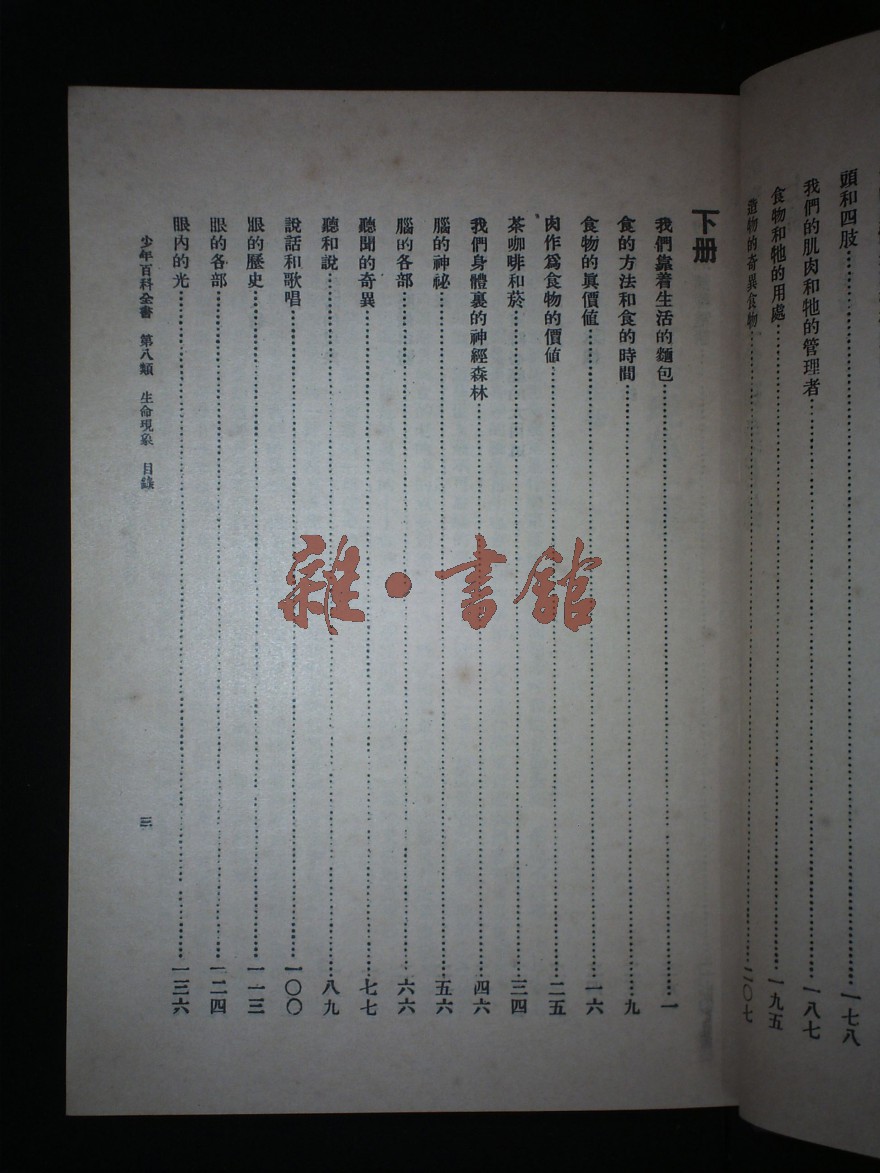 頭和四肢……一七八
我們的肌肉和牠的管理者……一八七
食物和牠的用處……一九五
造物的奇異食物……二〇七
下册
我們靠着生活的麵包……一
食的方法和食的時間……九
食物的眞價値……一六
肉作爲食物的價値……二五
茶咖啡和菸……三四
我們身體裏的神經森林……四六
腦的神祕……五六
腦的各部……六六
聽聞的奇異……七七
聽和說……八九
說話和歌唱……一〇〇
眼的歷史……一一三
眼的各部……一二四
眼內的光……一三六
少年百科全書 第八類 生命現象 目錄 三
雜·書館